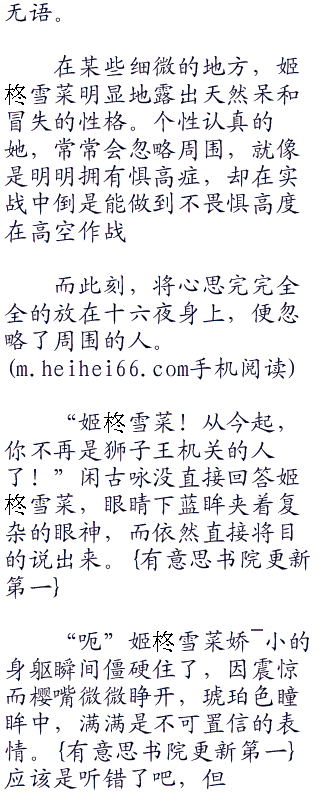 无语。
在某些细微的地方，姬
柊雪菜明显地露出天然呆和
冒失的性格。个性认真的
她，常常会忽略周围，就像
是明明拥有惧高症，却在实
战中倒是能做到不畏惧高度
在高空作战
而此刻，将心思完完全
全的放在十六夜身上，便忽
略了周围的人。
(m.heihei66.com手机阅读)
“姬柊雪菜！从今起，
你不再是狮子王机关的人
了！”闲古咏没直接回答姬
柊雪菜，眼睛下蓝眸夹着复
杂的眼神，而依然直接将目
的说出来。{有意思书院更新
第一}
“呃”姬柊雪菜娇¯小的
身躯瞬间僵硬住了，因震惊
而樱嘴微微睁开，琥珀色瞳
眸中，满满是不可置信的表
情。{有意思书院更新第一}
应该是听错了吧，但